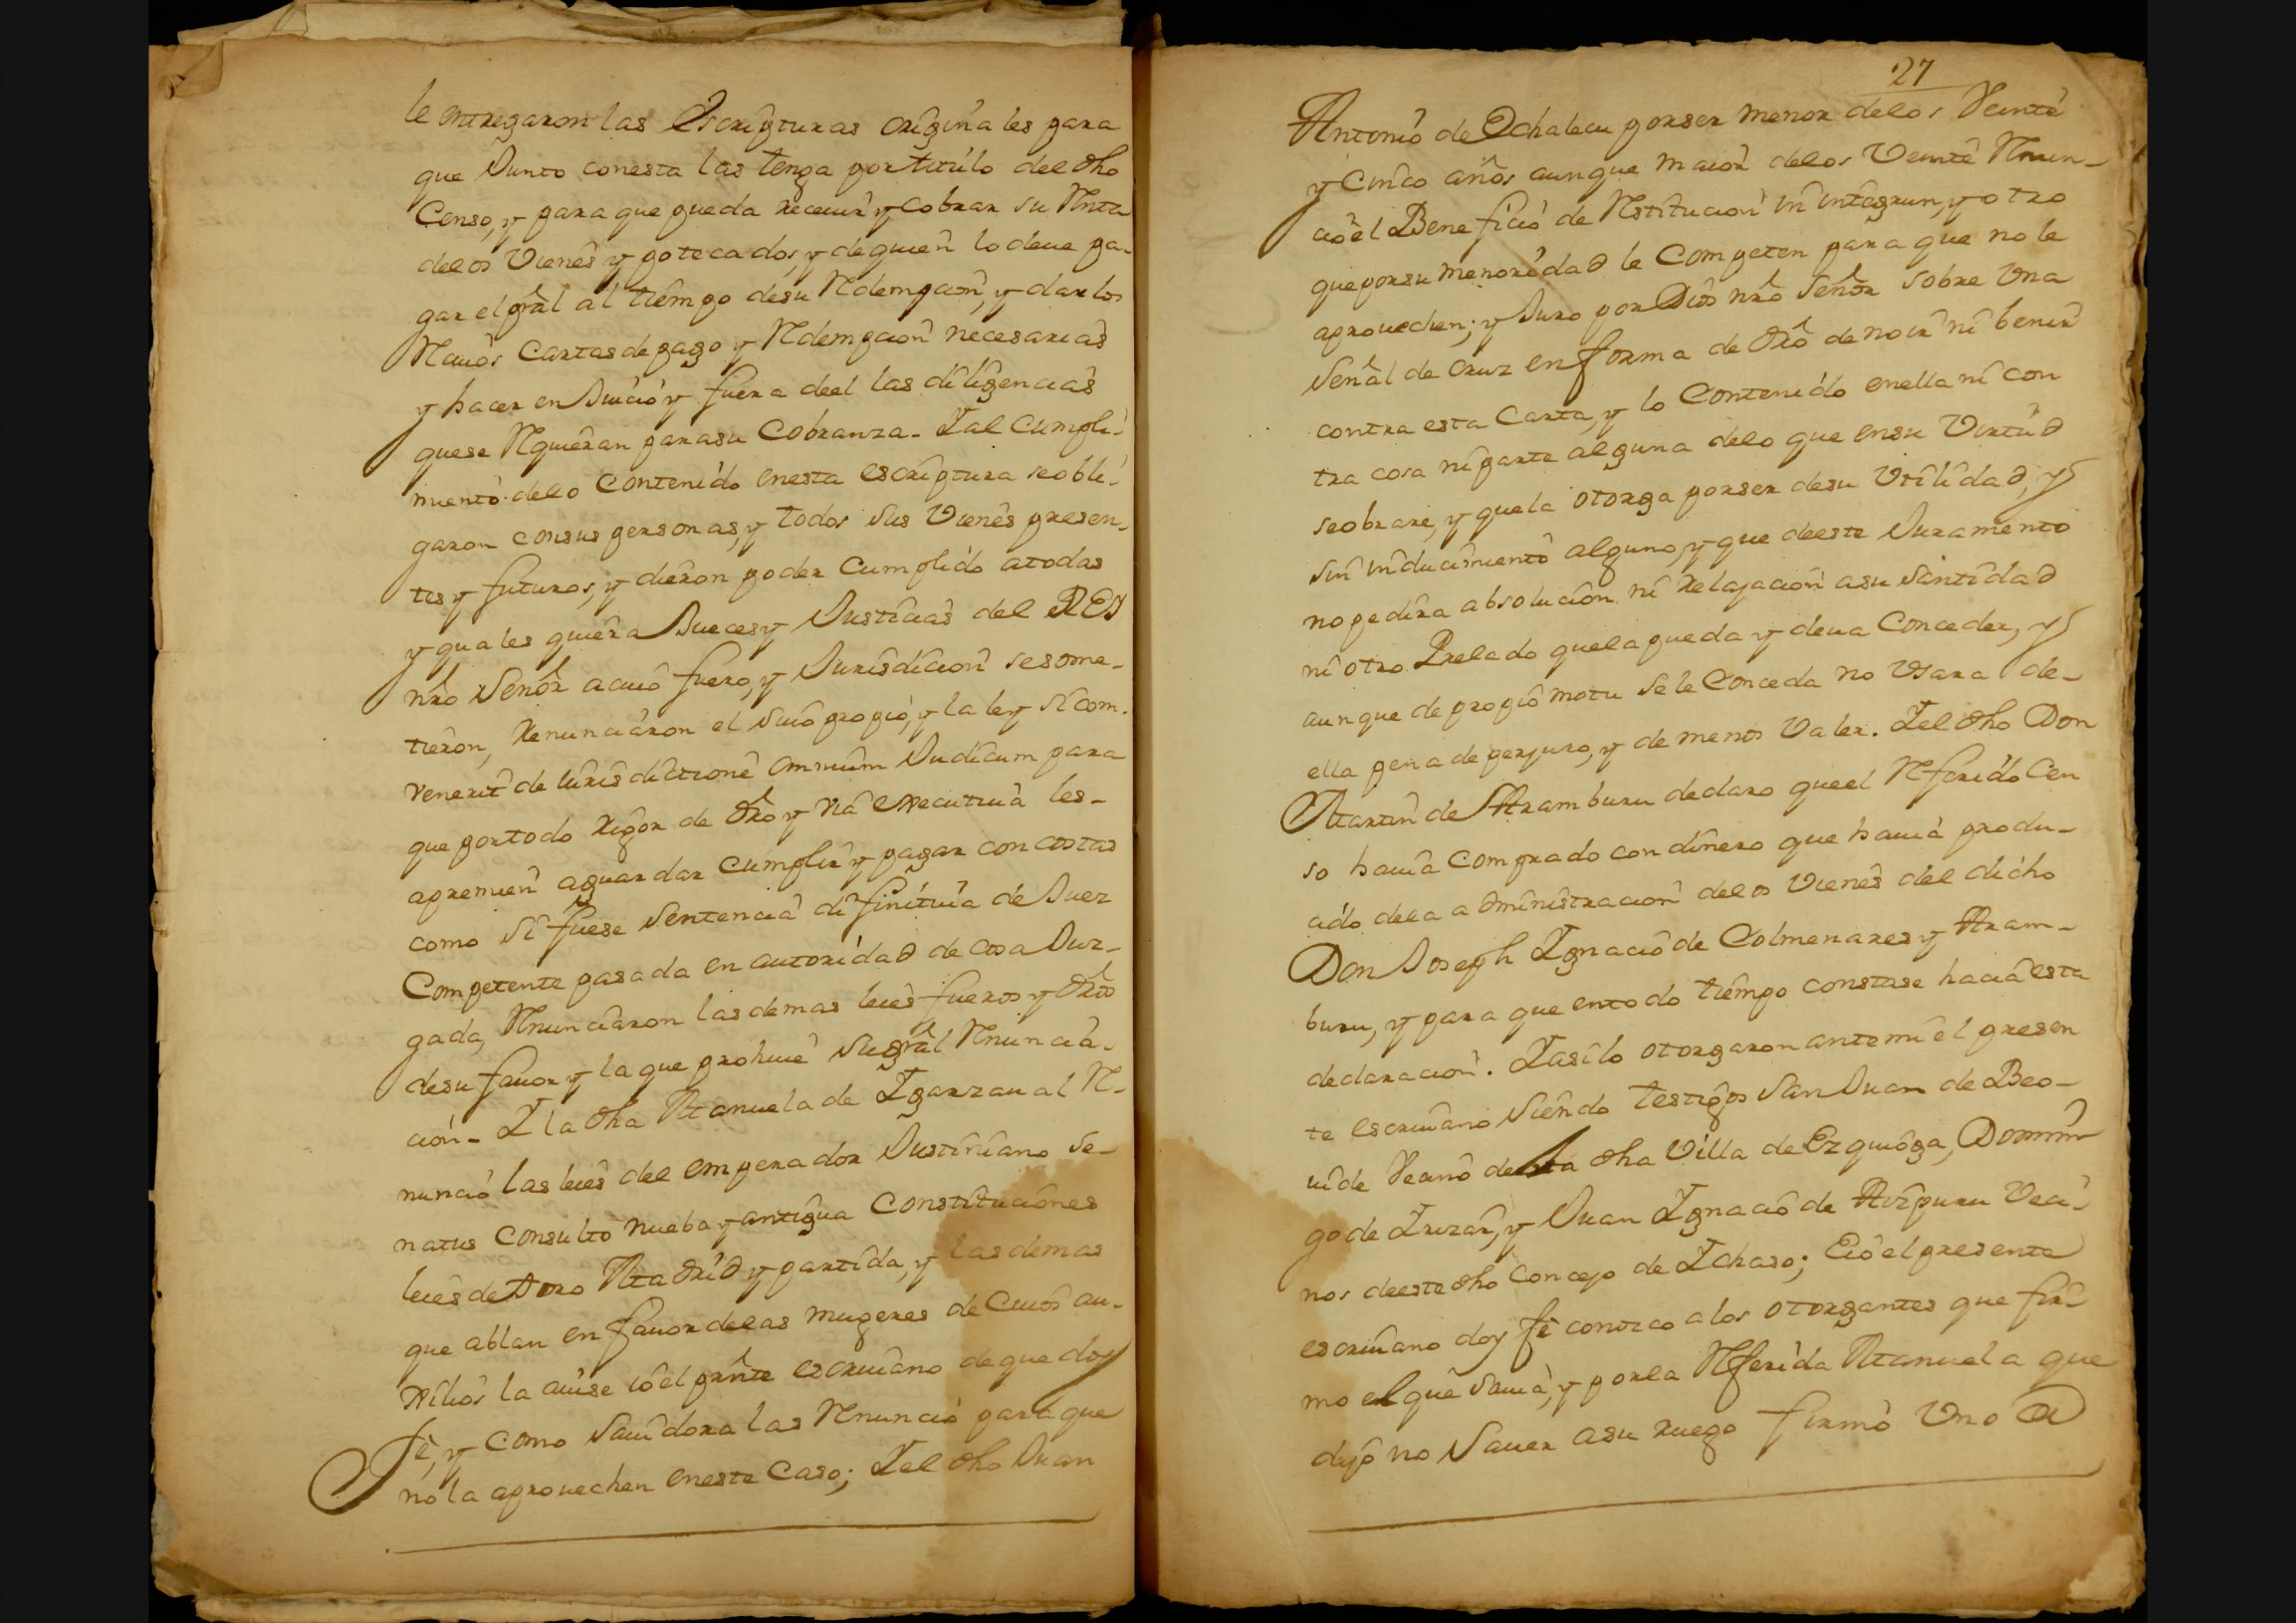 le entregaron las Escripturas originales para
que Junto conesta las tenga portitulo del dho
Censo, y para que pueda receuir y cobrar su Renta
delos Vienes ypotecados, y dequien lo deue pa-
gar el pral al tiempo desu Redempcion, y dar los
Reciuos Cartas de pago y Redempcion necesarias
y hacer en Juicio y fuera deel las diligencias
quese Requieran parasu Cobranza. Y al Cumpli-
miento delo Contenido enesta escriptura se obli-
garon consus personas, y todos sus Vienes presen-
tes y futuros, y dieron poder Cumplido atodas
y quales quiera Jueces y Justicias del REY
nro Señor acuio fuero, y Jurisdicion se some-
tieron, Renunciaron el suio propio, y la ley si com-
venerit de iurisdictione omnium Judicum para
que portodo rigor de dro y via executiua les
apremien aguardar cumplir y pagar con costas
como si fuese Sentencia difinitiua de Juez
Competente pasada en autoridad de cosa Juz-
gada, Renunciaron las demas leies fueros y dros
desu fauor y la que prohiue su gral Renuncia-
cion. Y la dha Manuela de Yparzaual Re-
nuncio las leies del emperador Justiniano Se-
natus Consulto nueba y antigua Constituciones
leies de Toro Madrid y partida, y las demas
que ablan en fauor delas mugeres de Cuios au-
xilios la auise io el prnte escriuano de que doy
fe, y como Sauidora las Renuncio para que
no la aprouechen eneste Caso; Y el dho Juan
27
Antonio de Ochalecu porser menor delos Veinte
y Cinco años aunque maior delos Veinte Renun-
cio el Beneficio de Restitucion in integrun, y otro
que porsu menoridad le Competen para que no le
aprouechen; y Juro por Dios nro Señor sobre Una
Señal de Cruz en forma de dro de no ir ni benir
contra esta Carta, y lo Contenido enella ni con
tra cosa ni parte alguna delo que ensu Virtud
seobrare, y quela otorga porser desu Utilidad, y
sin inducimiento alguno, y que deeste Juramento
no pedira absolucion ni relajacion asu Santidad
ni otro Prelado quela pueda y deua Conceder, y
aunque de propio motu se le Conceda no Usara de-
ella pena de perjuro, y de menos Valer. Y el dho Don
Martin de Aramburu declaro queel Referido Cen
so hauia Comprado con dinero que hauia produ-
cido dela administracion delos Vienes del dicho
Don Joseph Ygnacio de Colmenares y Aram-
buru, y para que entodo tiempo constase hacia esta
declaracion. Y asi lo otorgaron ante mi el presen
te escriuano siendo testigos San Juan de Beo-
uide Vecino de la dha Villa de Ezquioga, Domin-
go de Yruzar, y Juan Ygnacio de Aizpuru Veci-
nos deeste dho Concejo de Ychaso; E io el presente
escriuano doy fe conozco alos otorgantes que fir-
mo el que Sauia, y porla Referida Manuela que
dijo no Sauer asu ruego firmo Uno